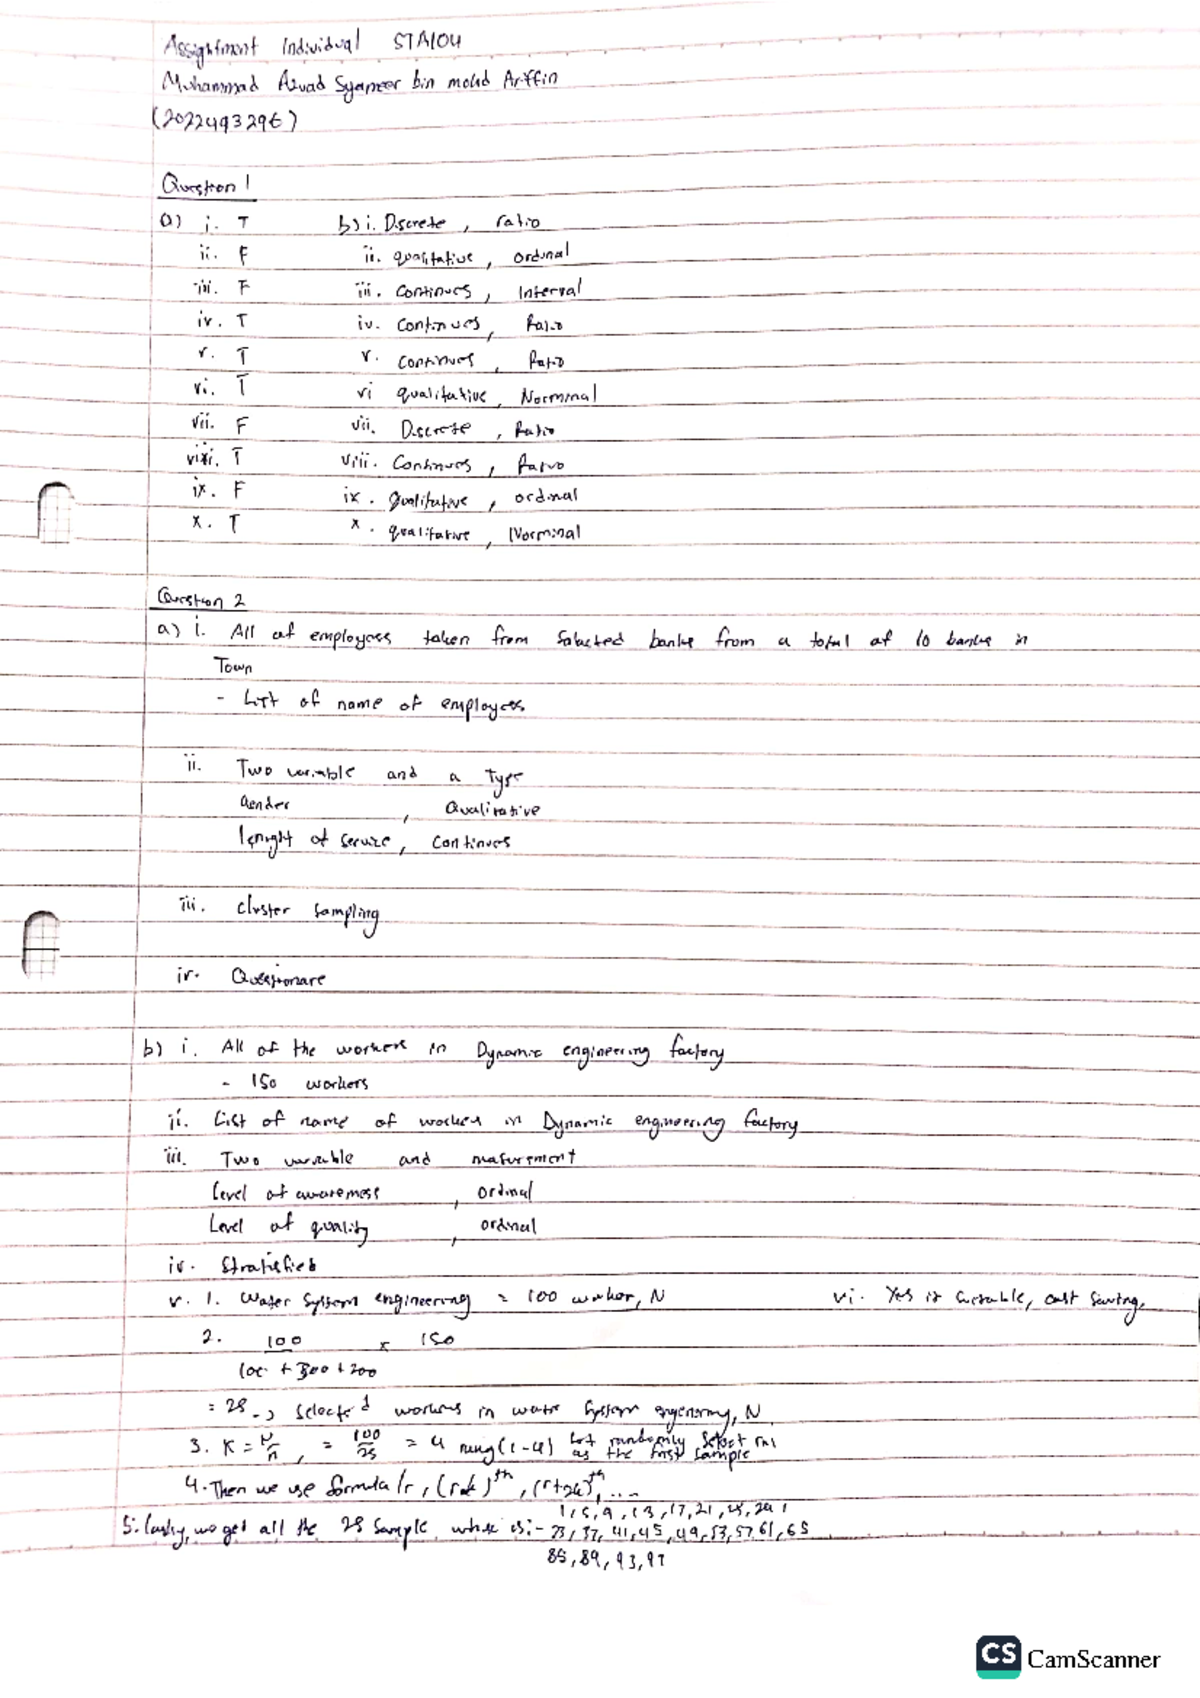 Assignment Individual STA104
Muhammad Azwad Syameer bin mohd Ariffin
(2022493296)
Question 1
a) i. T b) i. Discrete, ratio
ii. F ii. qualitative, ordinal
iii. F iii. Continues, Interval
iv. T iv. Continues, Ratio
v. T v. Continues, Ratio
vi. T vi qualitative, Norminal
vii. F vii. Discrete, Ratio
viii. T viii. Continues, Ratio
ix. F ix. qualitative, ordinal
x. T x. qualitative, Norminal
Question 2
a) i. All of employees taken from Selected banks from a total of 10 banks in
Town
- List of name of employees
ii. Two variable and a Type
Gender, Qualitative
lenight of service, Continues
iii. Cluster Sampling
iv. Quesionare
b) i. All of the workers in Dynamic engineering factory
- 150 workers
ii. List of name of workers in Dynamic engineering factory
iii. Two variable and masurement
Level of awareness, ordinal
Level of quality, ordinal
iv. Stratified
v. 1. Water System engineering = 100 worker, N vi. Yes is suitable, cost saving.
2. 100 x 150
100 + 300 + 200
= 25 -> Selected workers in water System, N
3. K = N/n, = 100/25 = 4 (1-4) Let randomly Select
as the first sample
4. Then we use formula r, (r+k)th, (r+2k)th, ...
1, 5, 9, 13, 17, 21, 25, 29,
5. we get all the 25 Sample :- 33, 37, 41, 45, 49, 53, 57, 61, 65
85, 89, 93, 97
CS CamScanner